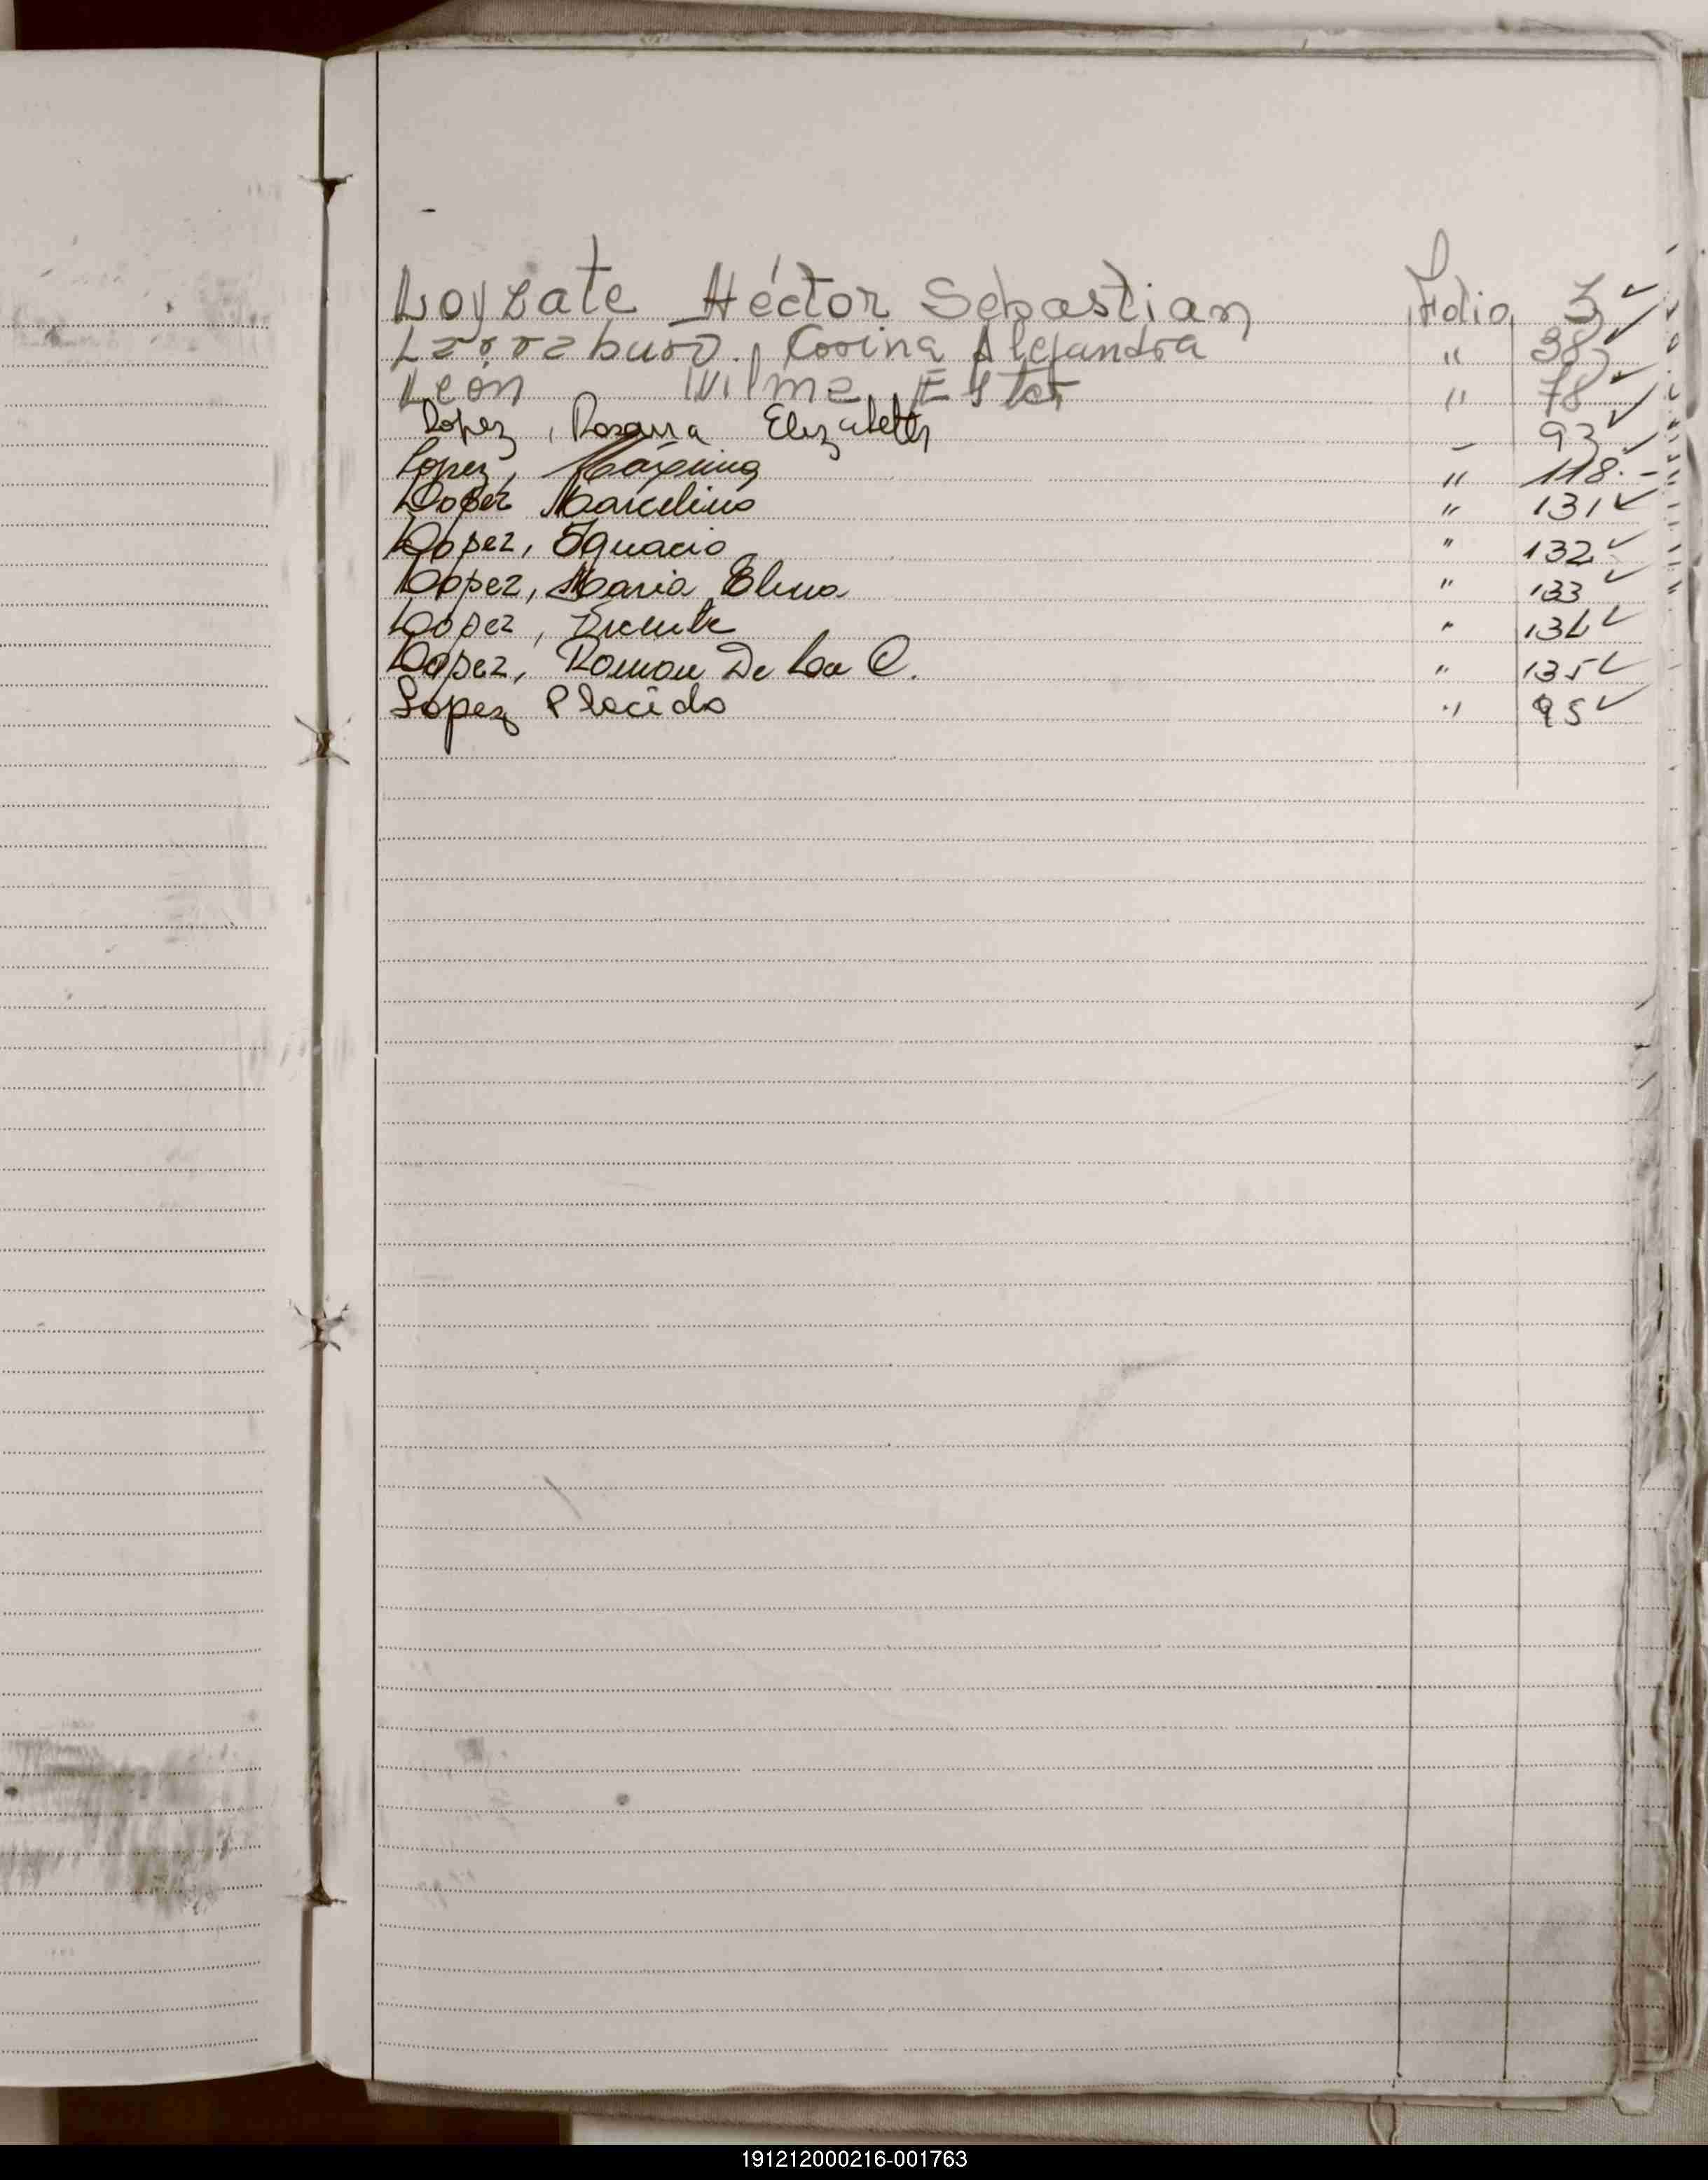 Loyzate Héctor Sebastian Folio 3 ✓
Larraburo, Corina Alejandra " 38 ✓
León Wilma Ester " 78 ✓
Lopez, Rosana Elizabeth - 93 ✓
Lopez, Máxima " 118. -
Lopez Marcelino " 131 ✓
Lopez, Ignacio " 132 ✓
Lopez, Maria Elena " 133 ✓
Lopez, Vicente " 134 ✓
Lopez, Roman De La C. " 135 ✓
Lopez Placido " 95 ✓
191212000216-001763